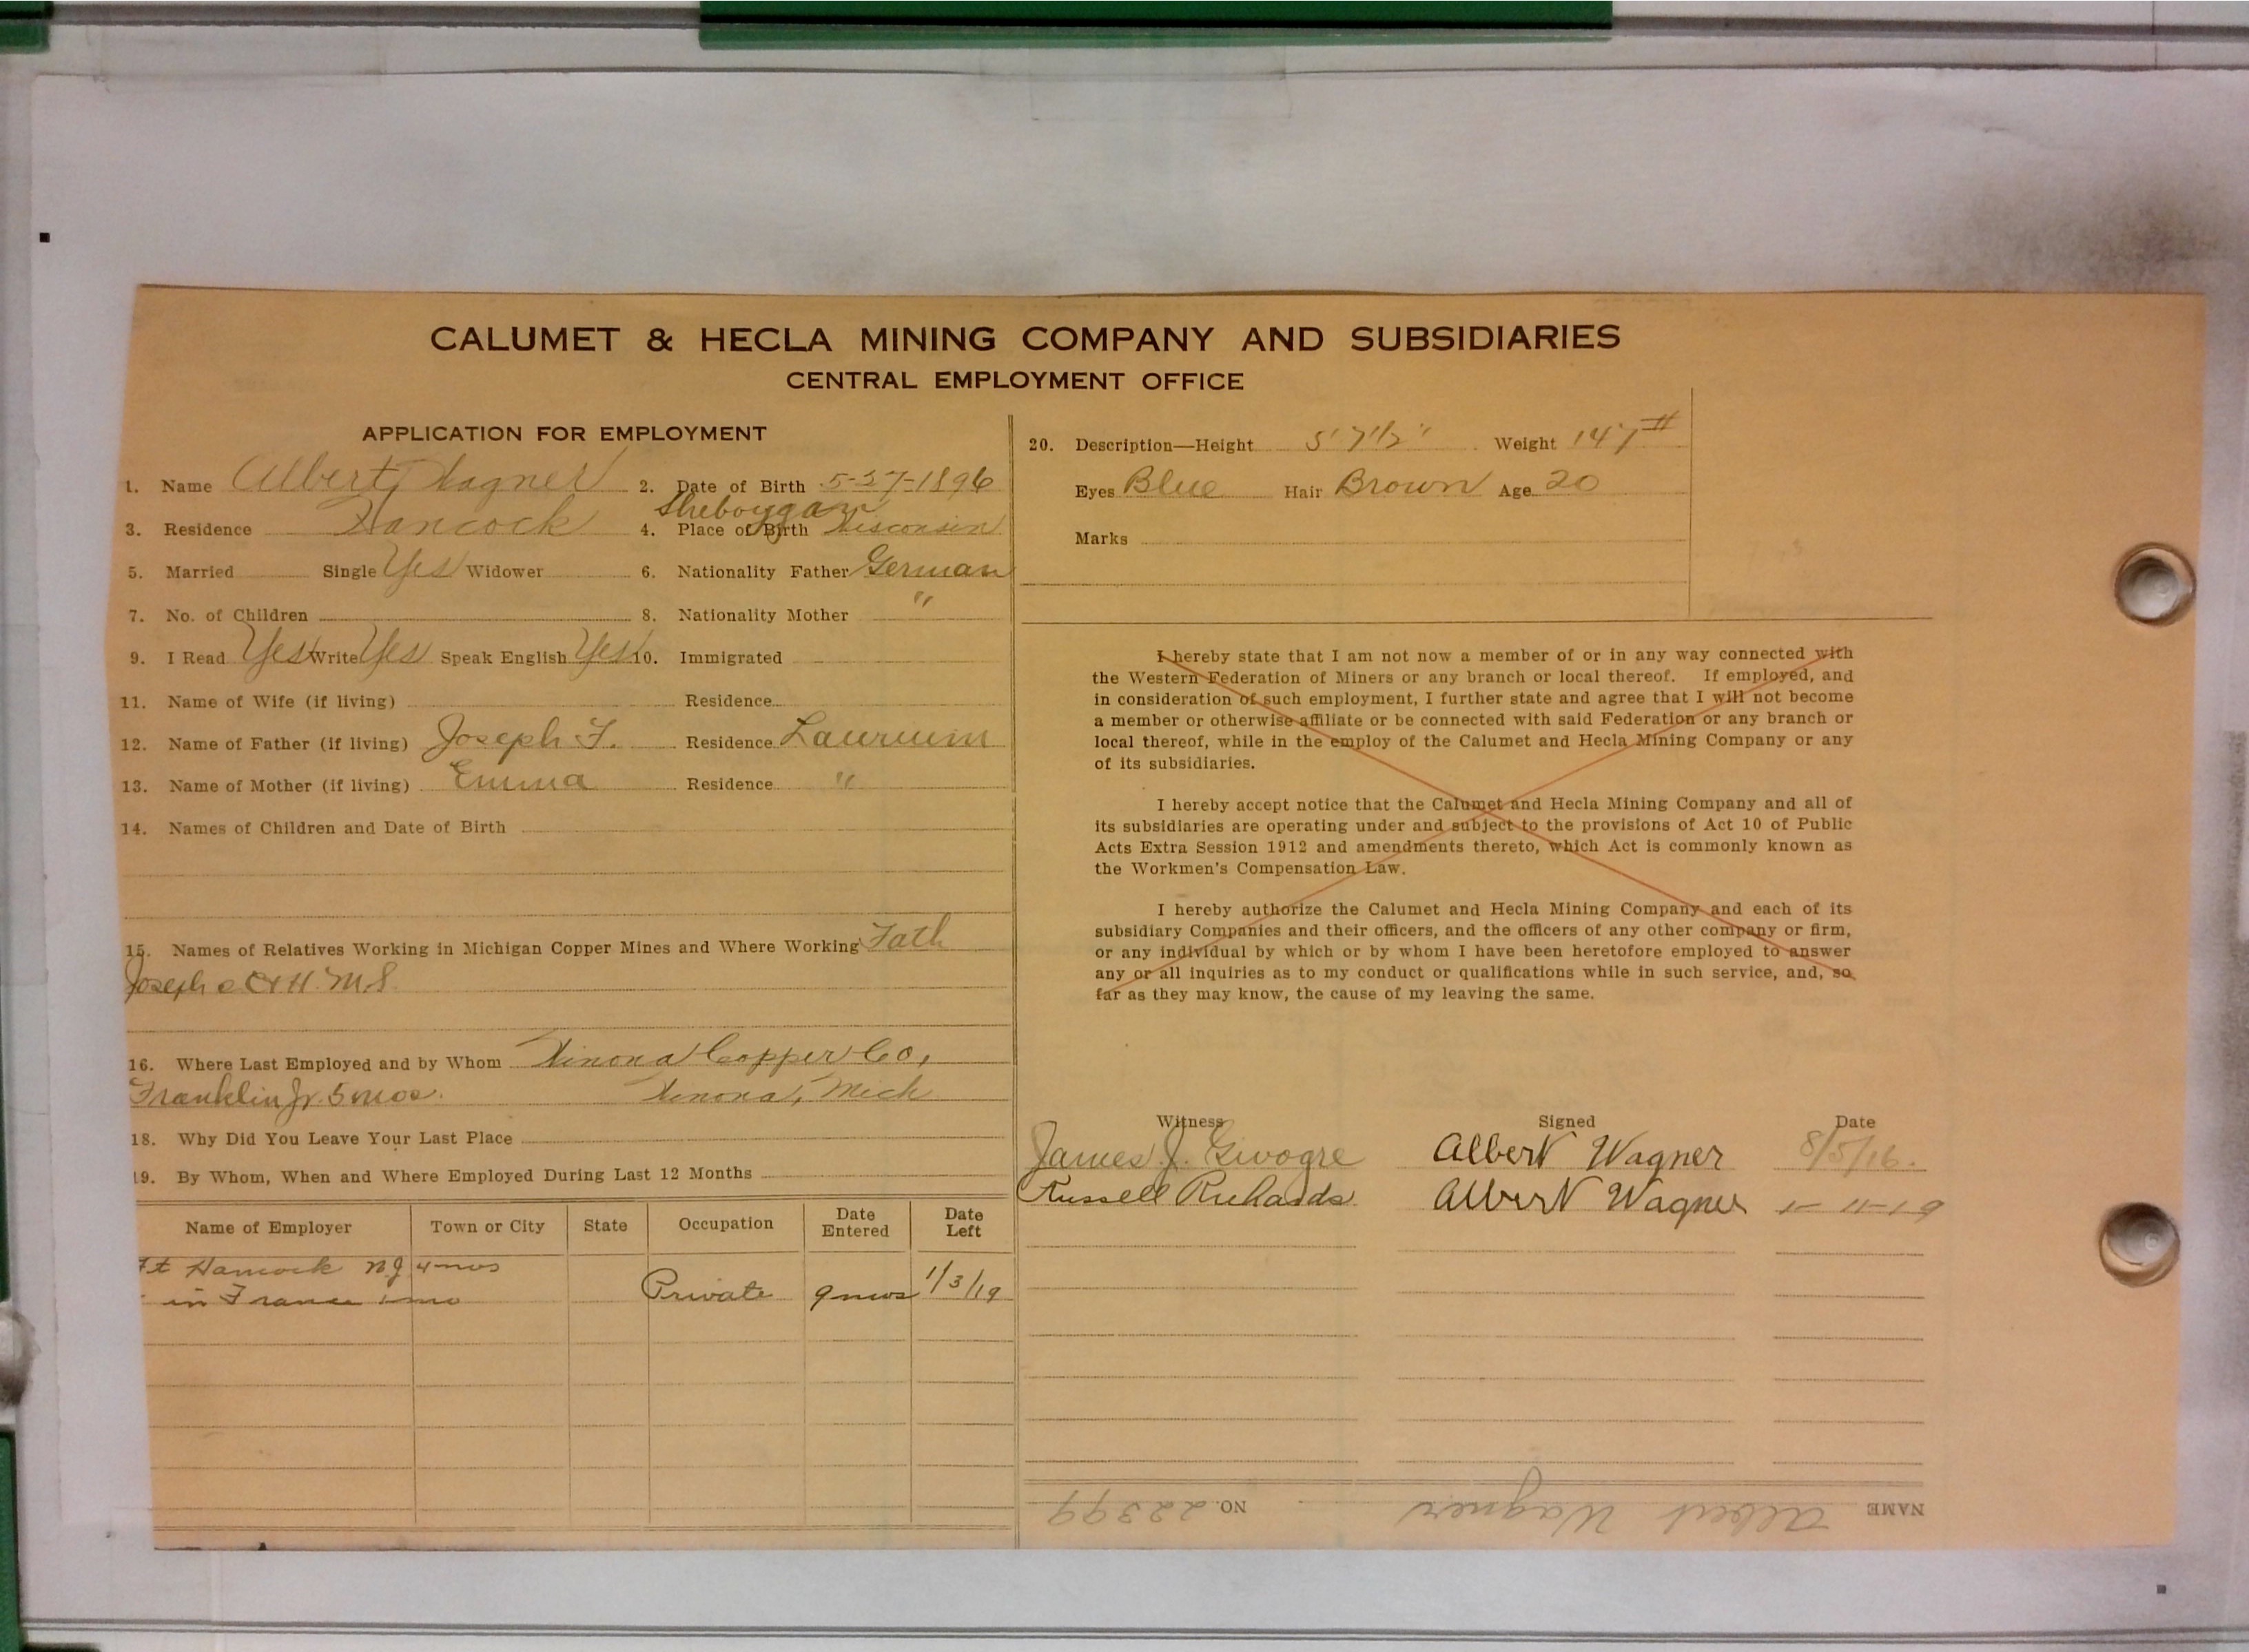 CALUMET & HECLA MINING COMPANY AND SUBSIDIARIES
CENTRAL EMPLOYMENT OFFICE
APPLICATION FOR EMPLOYMENT
1. Name Albert Wagner 2. Date of Birth 5-27-1896
Sheboygan
3. Residence Hancock 4. Place of Birth Wisconsin
5. Married Single Yes Widower 6. Nationality Father German
7. No. of Children 8. Nationality Mother "
9. I Read Yes Write Yes Speak English Yes 10. Immigrated
11. Name of Wife (if living) Residence
12. Name of Father (if living) Joseph F. Residence Laurium
13. Name of Mother (if living) Emma Residence "
14. Names of Children and Date of Birth
15. Names of Relatives Working in Michigan Copper Mines and Where Working Fath
Joseph C&H. M.S.
16. Where Last Employed and by Whom Winona Copper Co,
Franklin Jr. 5 mos. Winona, Mich
18. Why Did You Leave Your Last Place
19. By Whom, When and Where Employed During Last 12 Months
Name of Employer Town or City State Occupation Date Entered Date Left
Ft Hancock N.J 4 mos
in France 1 mo Private 9 mos 1/3/19
20. Description—Height 5' 7 1/2" Weight 147#
Eyes Blue Hair Brown Age 20
Marks
I hereby state that I am not now a member of or in any way connected with
the Western Federation of Miners or any branch or local thereof. If employed, and
in consideration of such employment, I further state and agree that I will not become
a member or otherwise affiliate or be connected with said Federation or any branch or
local thereof, while in the employ of the Calumet and Hecla Mining Company or any
of its subsidiaries.
I hereby accept notice that the Calumet and Hecla Mining Company and all of
its subsidiaries are operating under and subject to the provisions of Act 10 of Public
Acts Extra Session 1912 and amendments thereto, which Act is commonly known as
the Workmen's Compensation Law.
I hereby authorize the Calumet and Hecla Mining Company and each of its
subsidiary Companies and their officers, and the officers of any other company or firm,
or any individual by which or by whom I have been heretofore employed to answer
any or all inquiries as to my conduct or qualifications while in such service, and, so
far as they may know, the cause of my leaving the same.
Witness Signed Date
James J. Albert Wagner 8/5/16.
Russell Richards Albert Wagner 1-11-19
NAME Albert Wagner NO. 22399